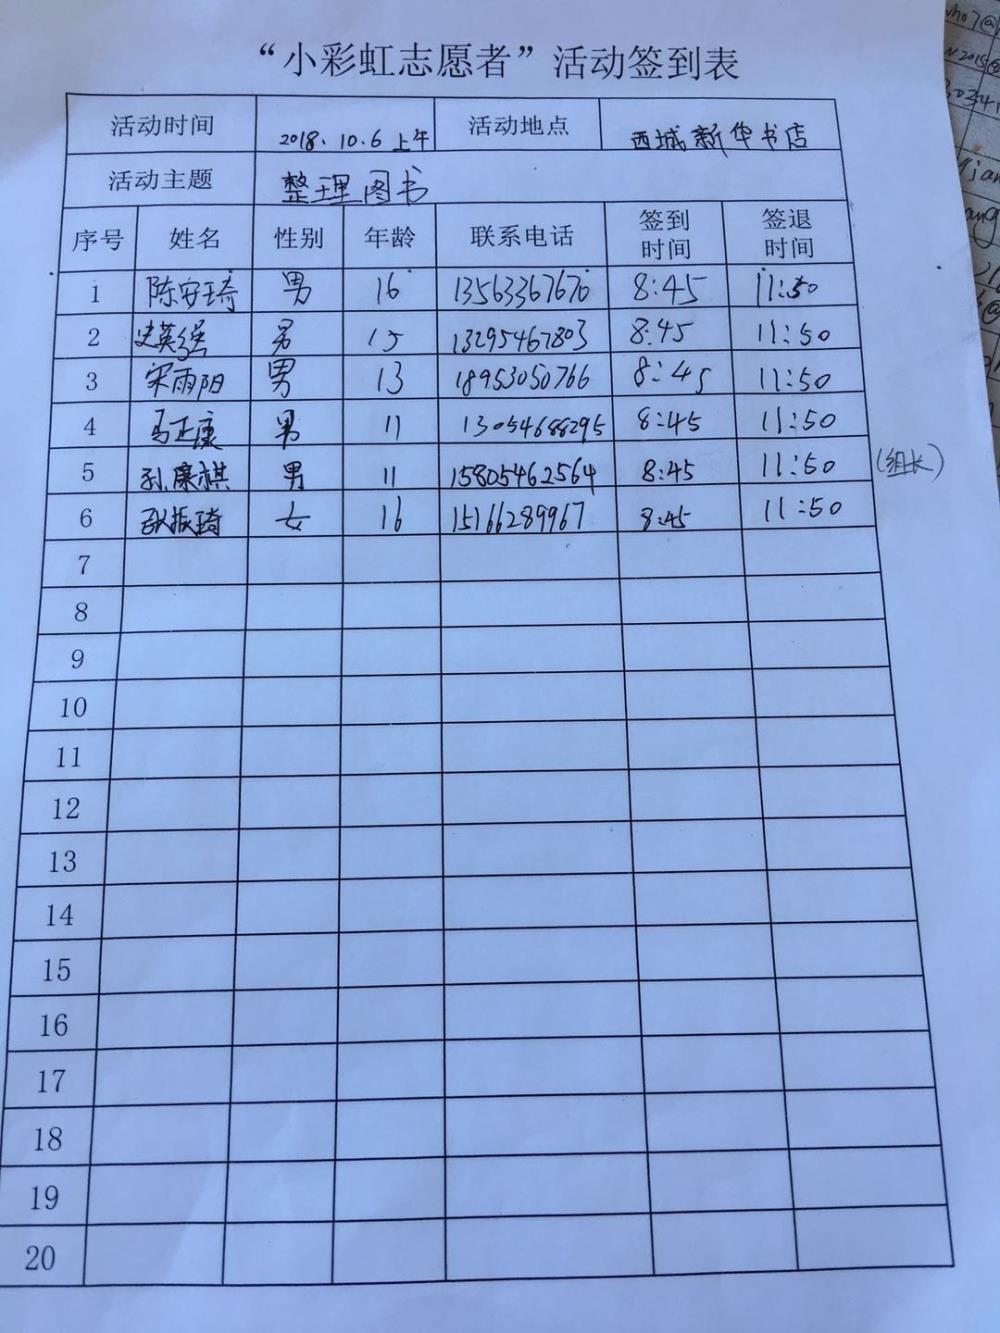 “小彩虹志愿者”活动签到表
活动时间 2018.10.6上午 活动地点 西城新华书店
活动主题 整理图书
序号 姓名 性别 年龄 联系电话 签到时间 签退时间
1 陈安琦 男 16 13563367670 8:45 11:50
2 史英强 男 15 13295467803 8:45 11:50
3 宋雨阳 男 13 18953050766 8:45 11:50
4 马正康 男 11 13054688295 8:45 11:50
5 孙康祺 男 11 15805462564 8:45 11:50 (组长)
6 振琦 女 16 15166289967 8:45 11:50
7
8
9
10
11
12
13
14
15
16
17
18
19
20